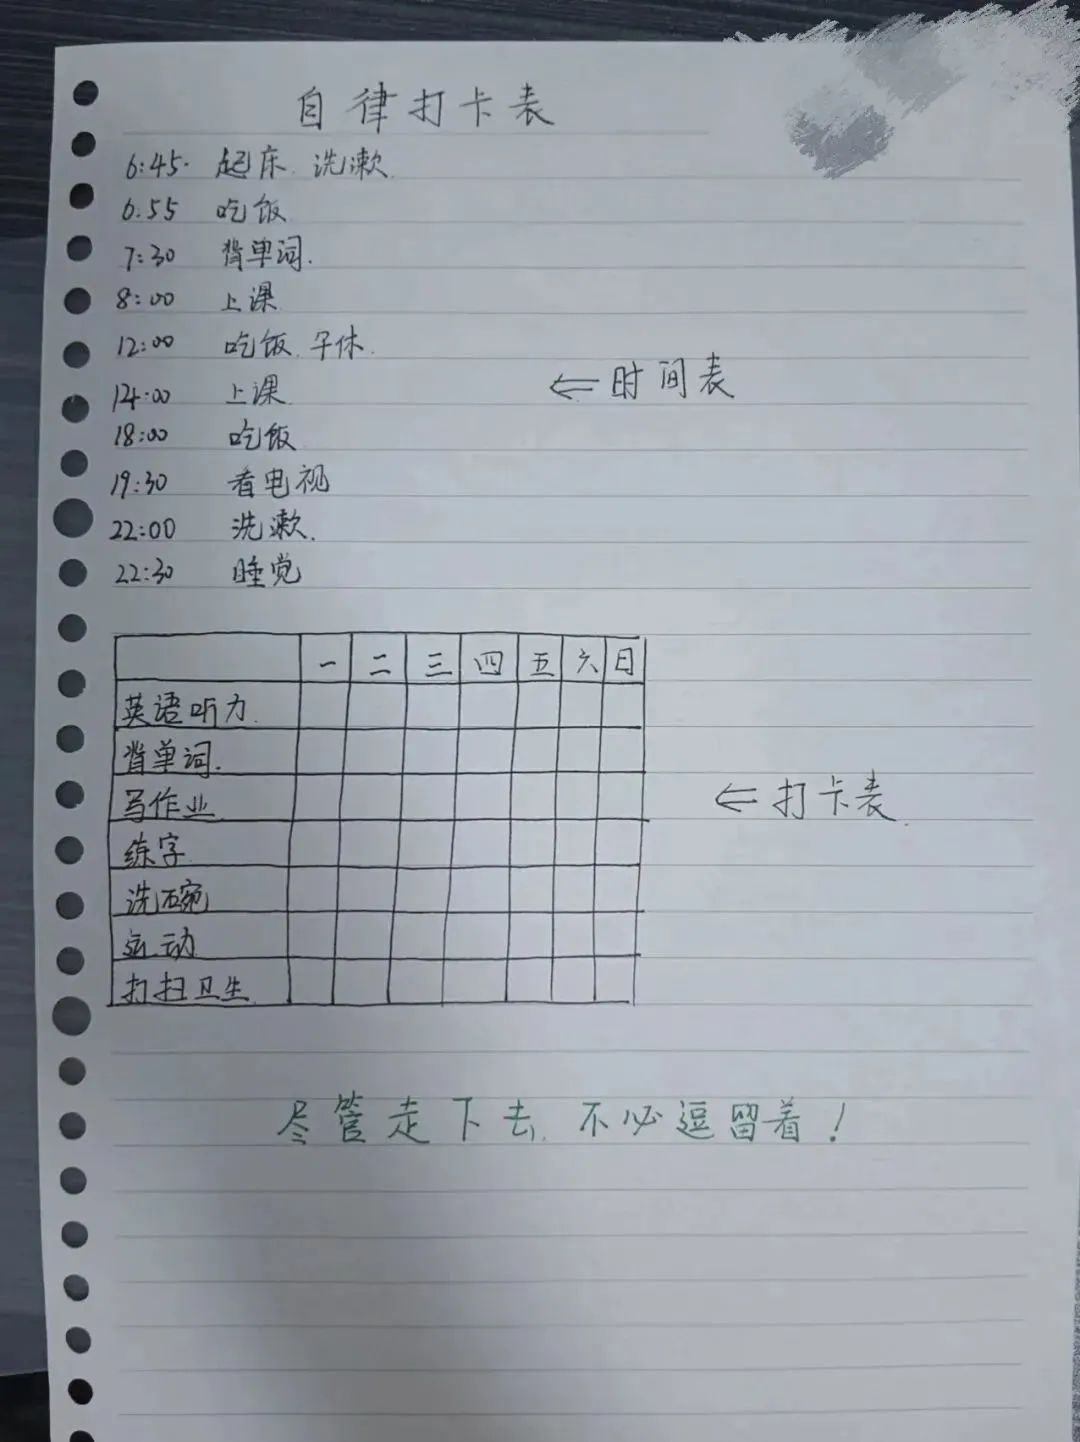 自律打卡表
6:45. 起床 洗漱
6:55 吃饭
7:30 背单词.
8:00 上课
12:00 吃饭. 午休.
14:00 上课.
← 时间表
18:00 吃饭
19:30 看电视
22:00 洗漱.
22:30 睡觉
一 二 三 四 五 六 日
英语听力.
背单词.
写作业
← 打卡表.
练字
洗碗
运动
打扫卫生
尽管走下去.不必逗留着!